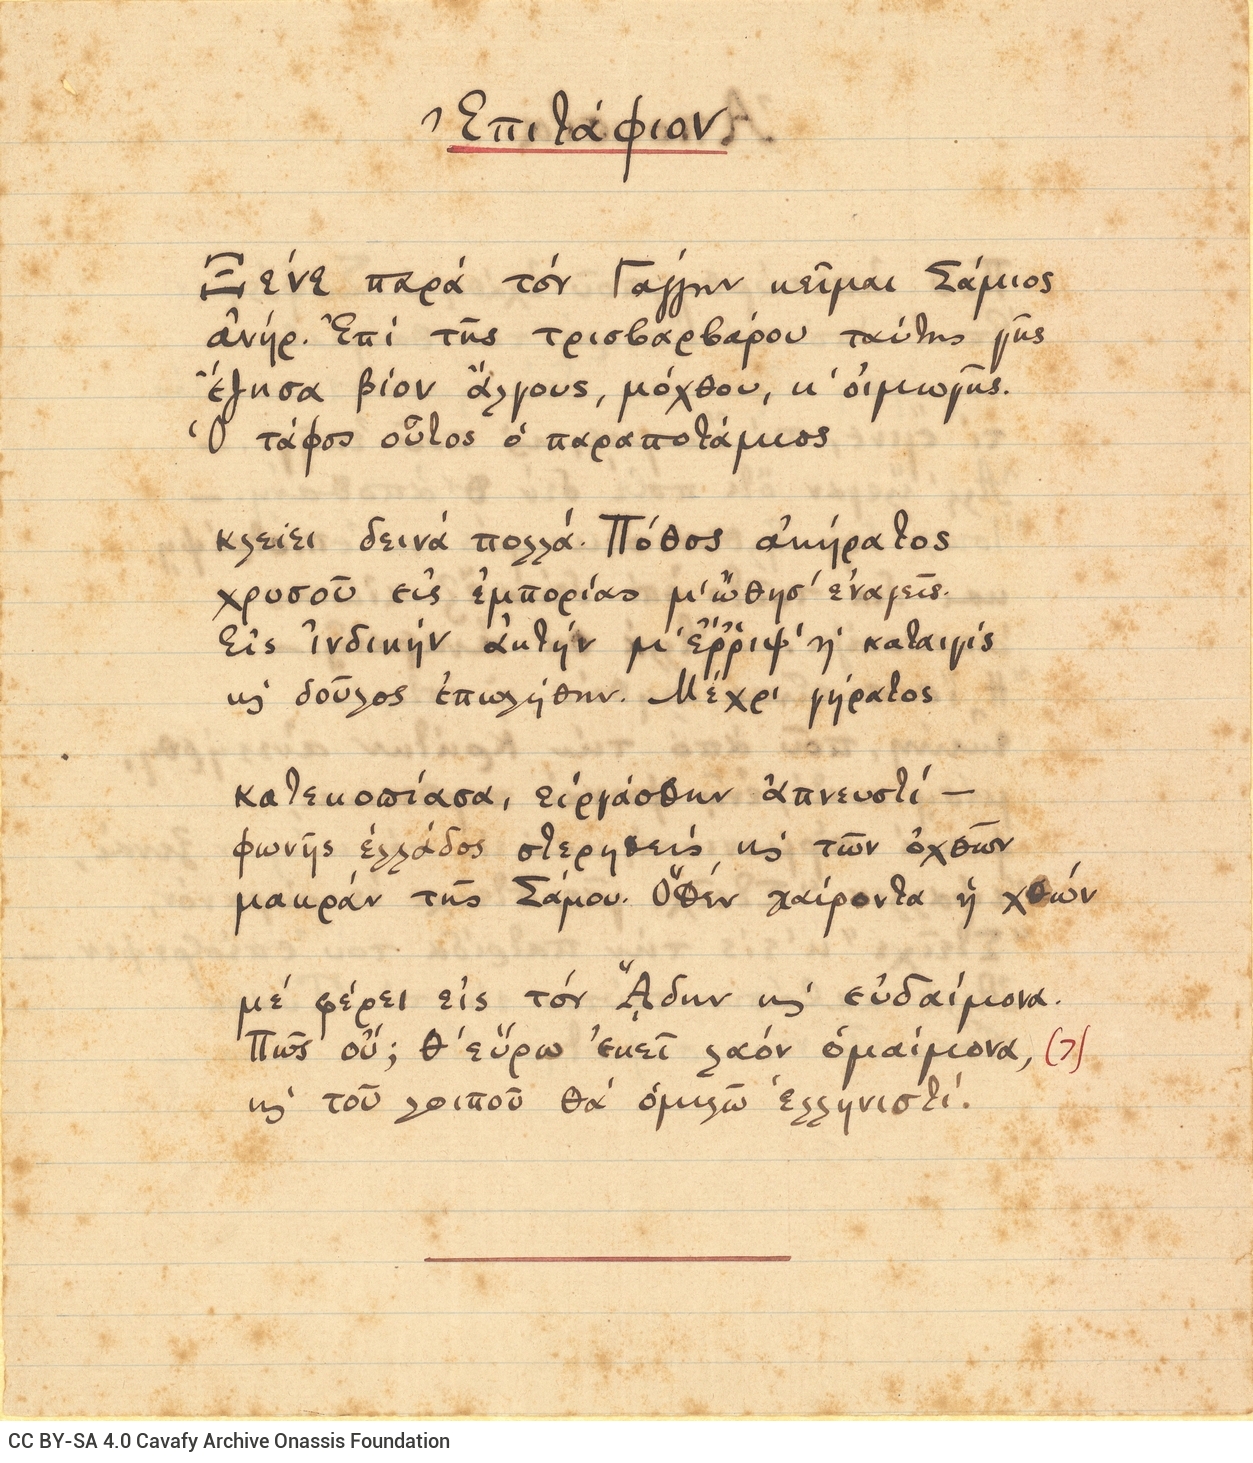 Ἐπιτάφιον
Ξένε παρά τόν Γάγγην κεῖμαι Σάμιος
ἀνήρ. Ἐπί τῆς τρισβαρβάρου ταύτης γῆς
ἔζησα βίον ἄλγους, μόχθου, κ' οἰμωγῆς.
Ὁ τάφος οὗτος ὁ παραποτάμιος
κλείει δεινά πολλά. Πόθος ἀκήρατος
χρυσοῦ εἰς ἐμπορίας μ' ὤθησ' ἐναγεῖς.
Εἰς Ἰνδικήν ἀκτήν μ' ἔῤῥιψ' ἡ καταιγίς
κι δοῦλος ἐπωλήθην. Μέχρι γήρατος
κατεκοπίασα, εἰργάσθην ἀπνευστί —
φωνῆς ἑλλάδος στερηθείς, κι τῶν ὀχθῶν
μακράν τῆς Σάμου. Ὅθεν χαίροντα ἡ χθών
μέ φέρει εἰς τόν ᾍδην κι εὐδαίμονα.
Πῶς οὔ; θ' εὕρω ἐκεῖ λαόν ὁμαίμονα, (7)
κι τοῦ λοιποῦ θά ὁμιλῶ ἑλληνιστί.
CC BY-SA 4.0 Cavafy Archive Onassis Foundation